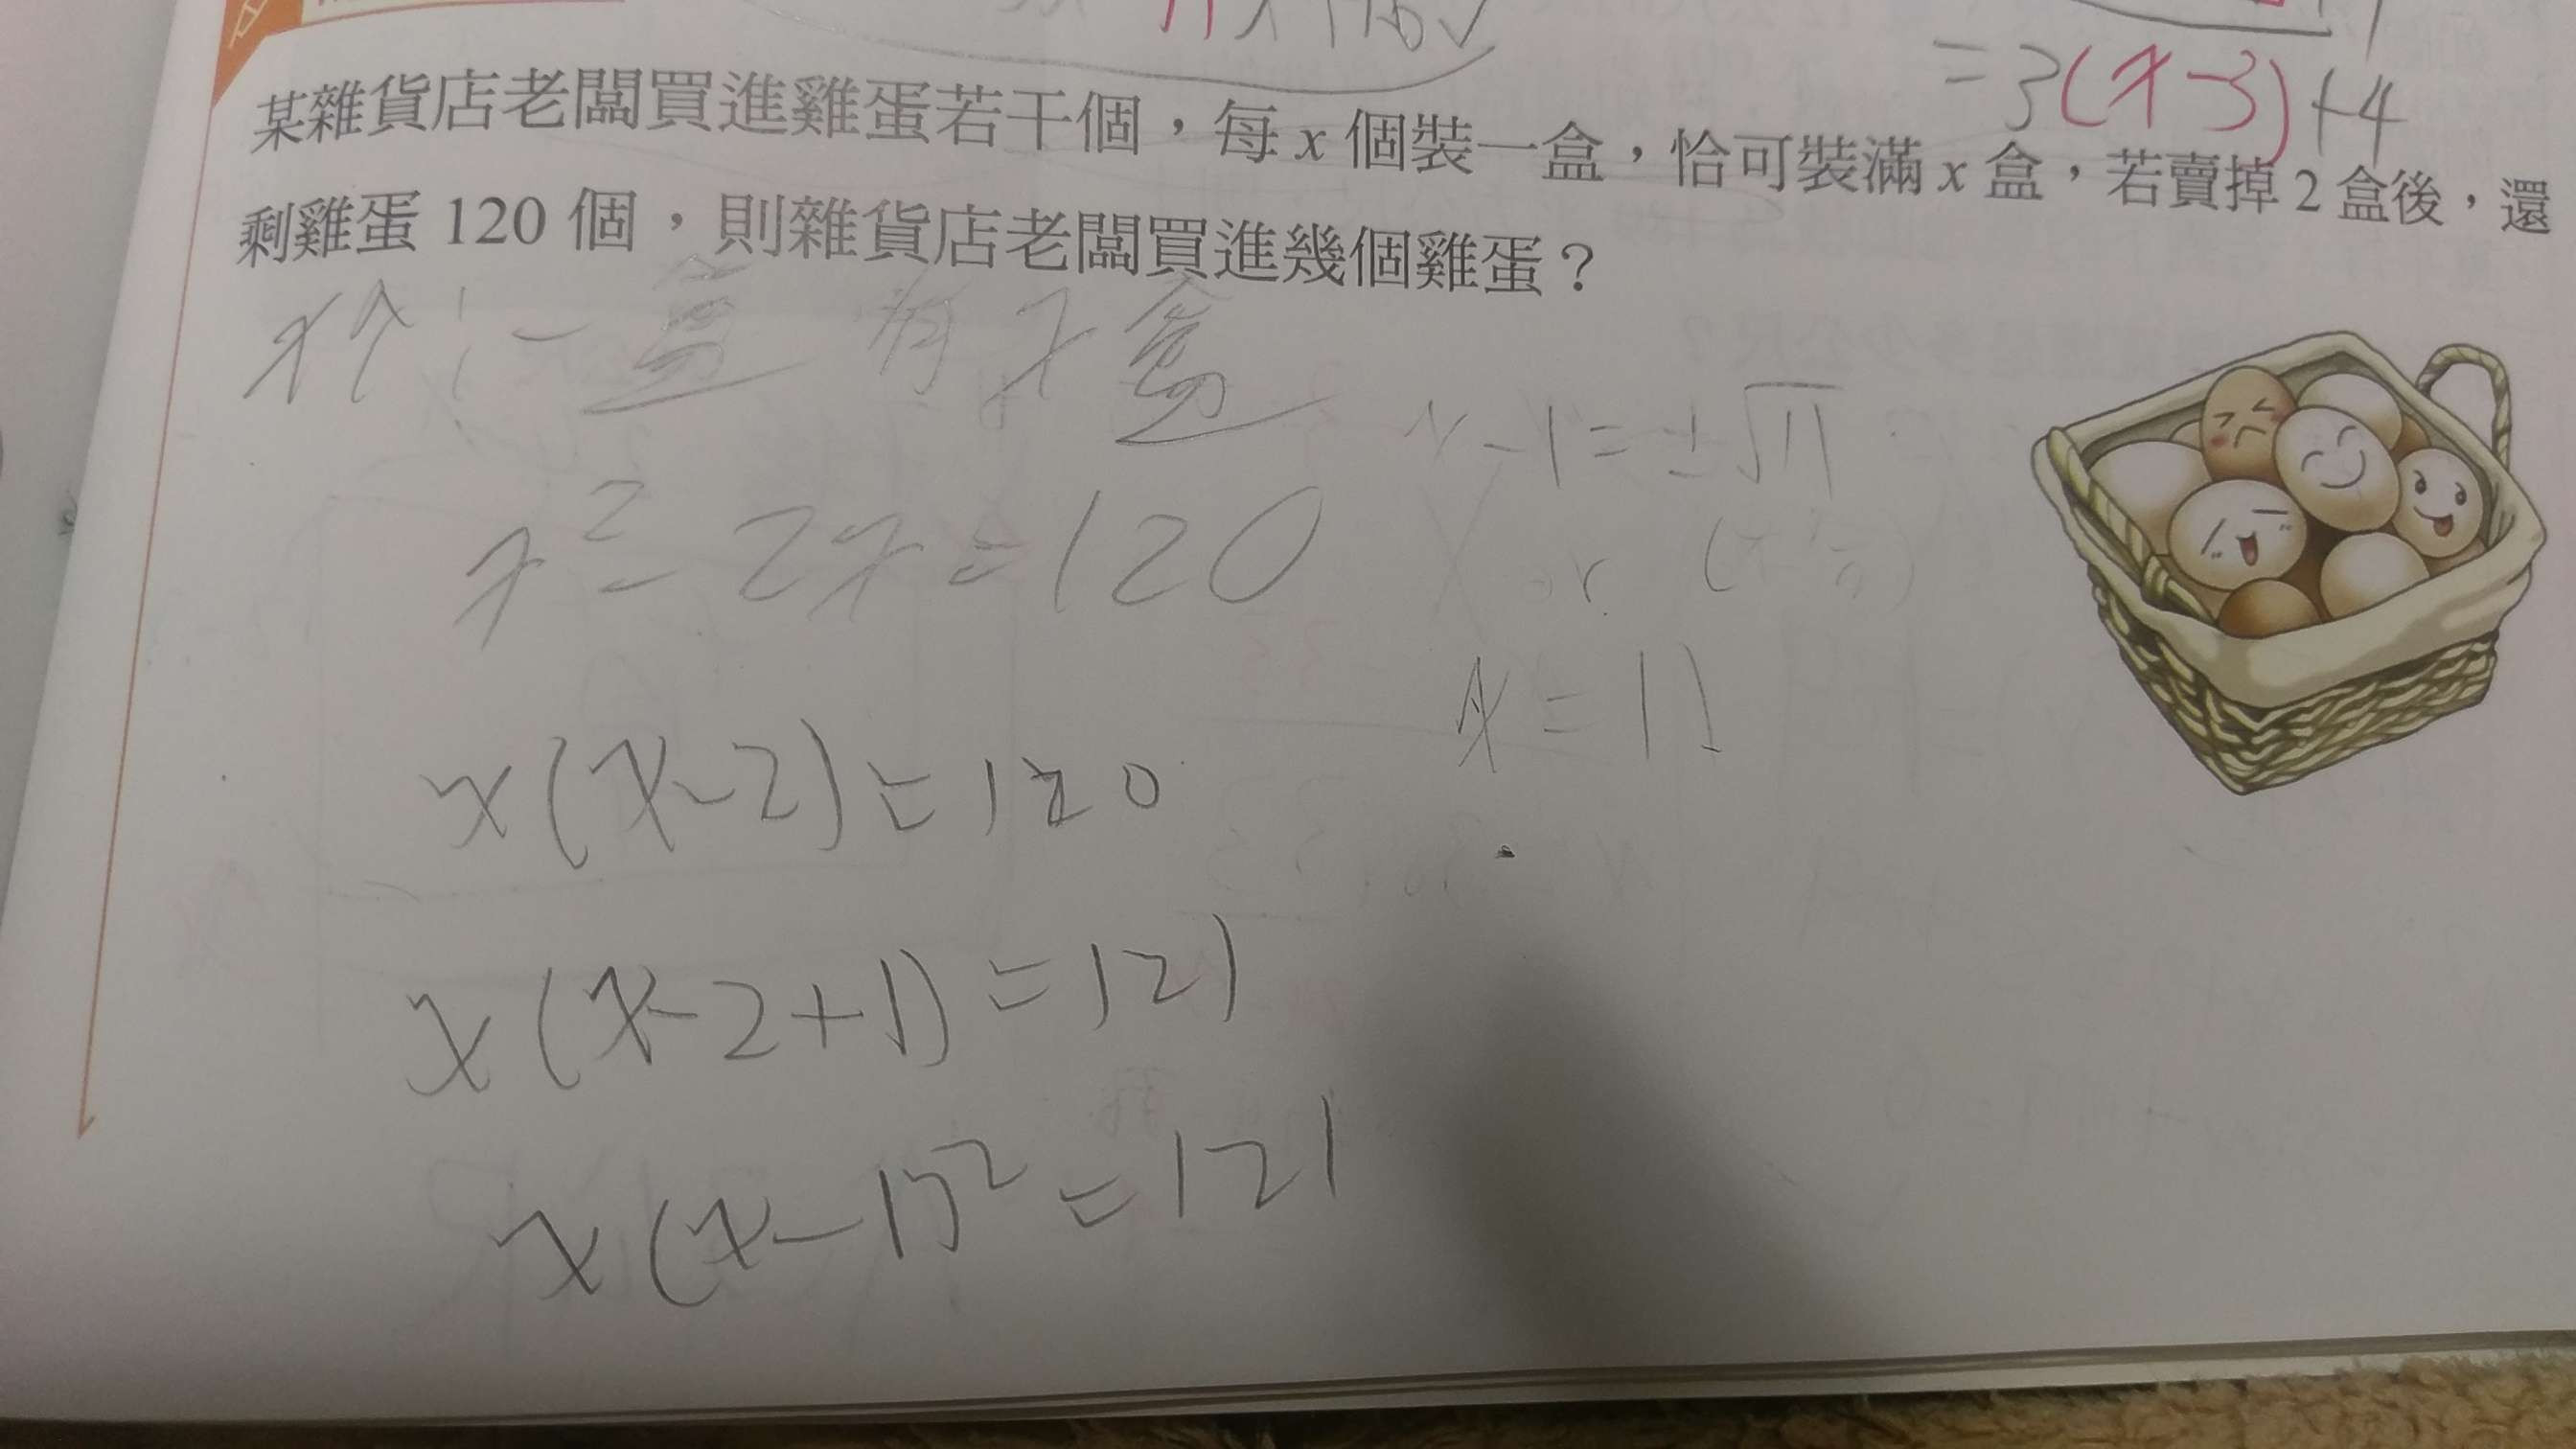 = 3(x-3)+4
某雜貨店老闆買進雞蛋若干個，每 x 個裝一盒，恰可裝滿 x 盒，若賣掉 2 盒後，還
剩雞蛋 120 個，則雜貨店老闆買進幾個雞蛋？
x个 一盒 有 x 盒
x² - 2x = 120
x(x-2) = 120
x(x-2+1) = 121
x(x-1)² = 121
x-1 = ±√11
or
x = 11